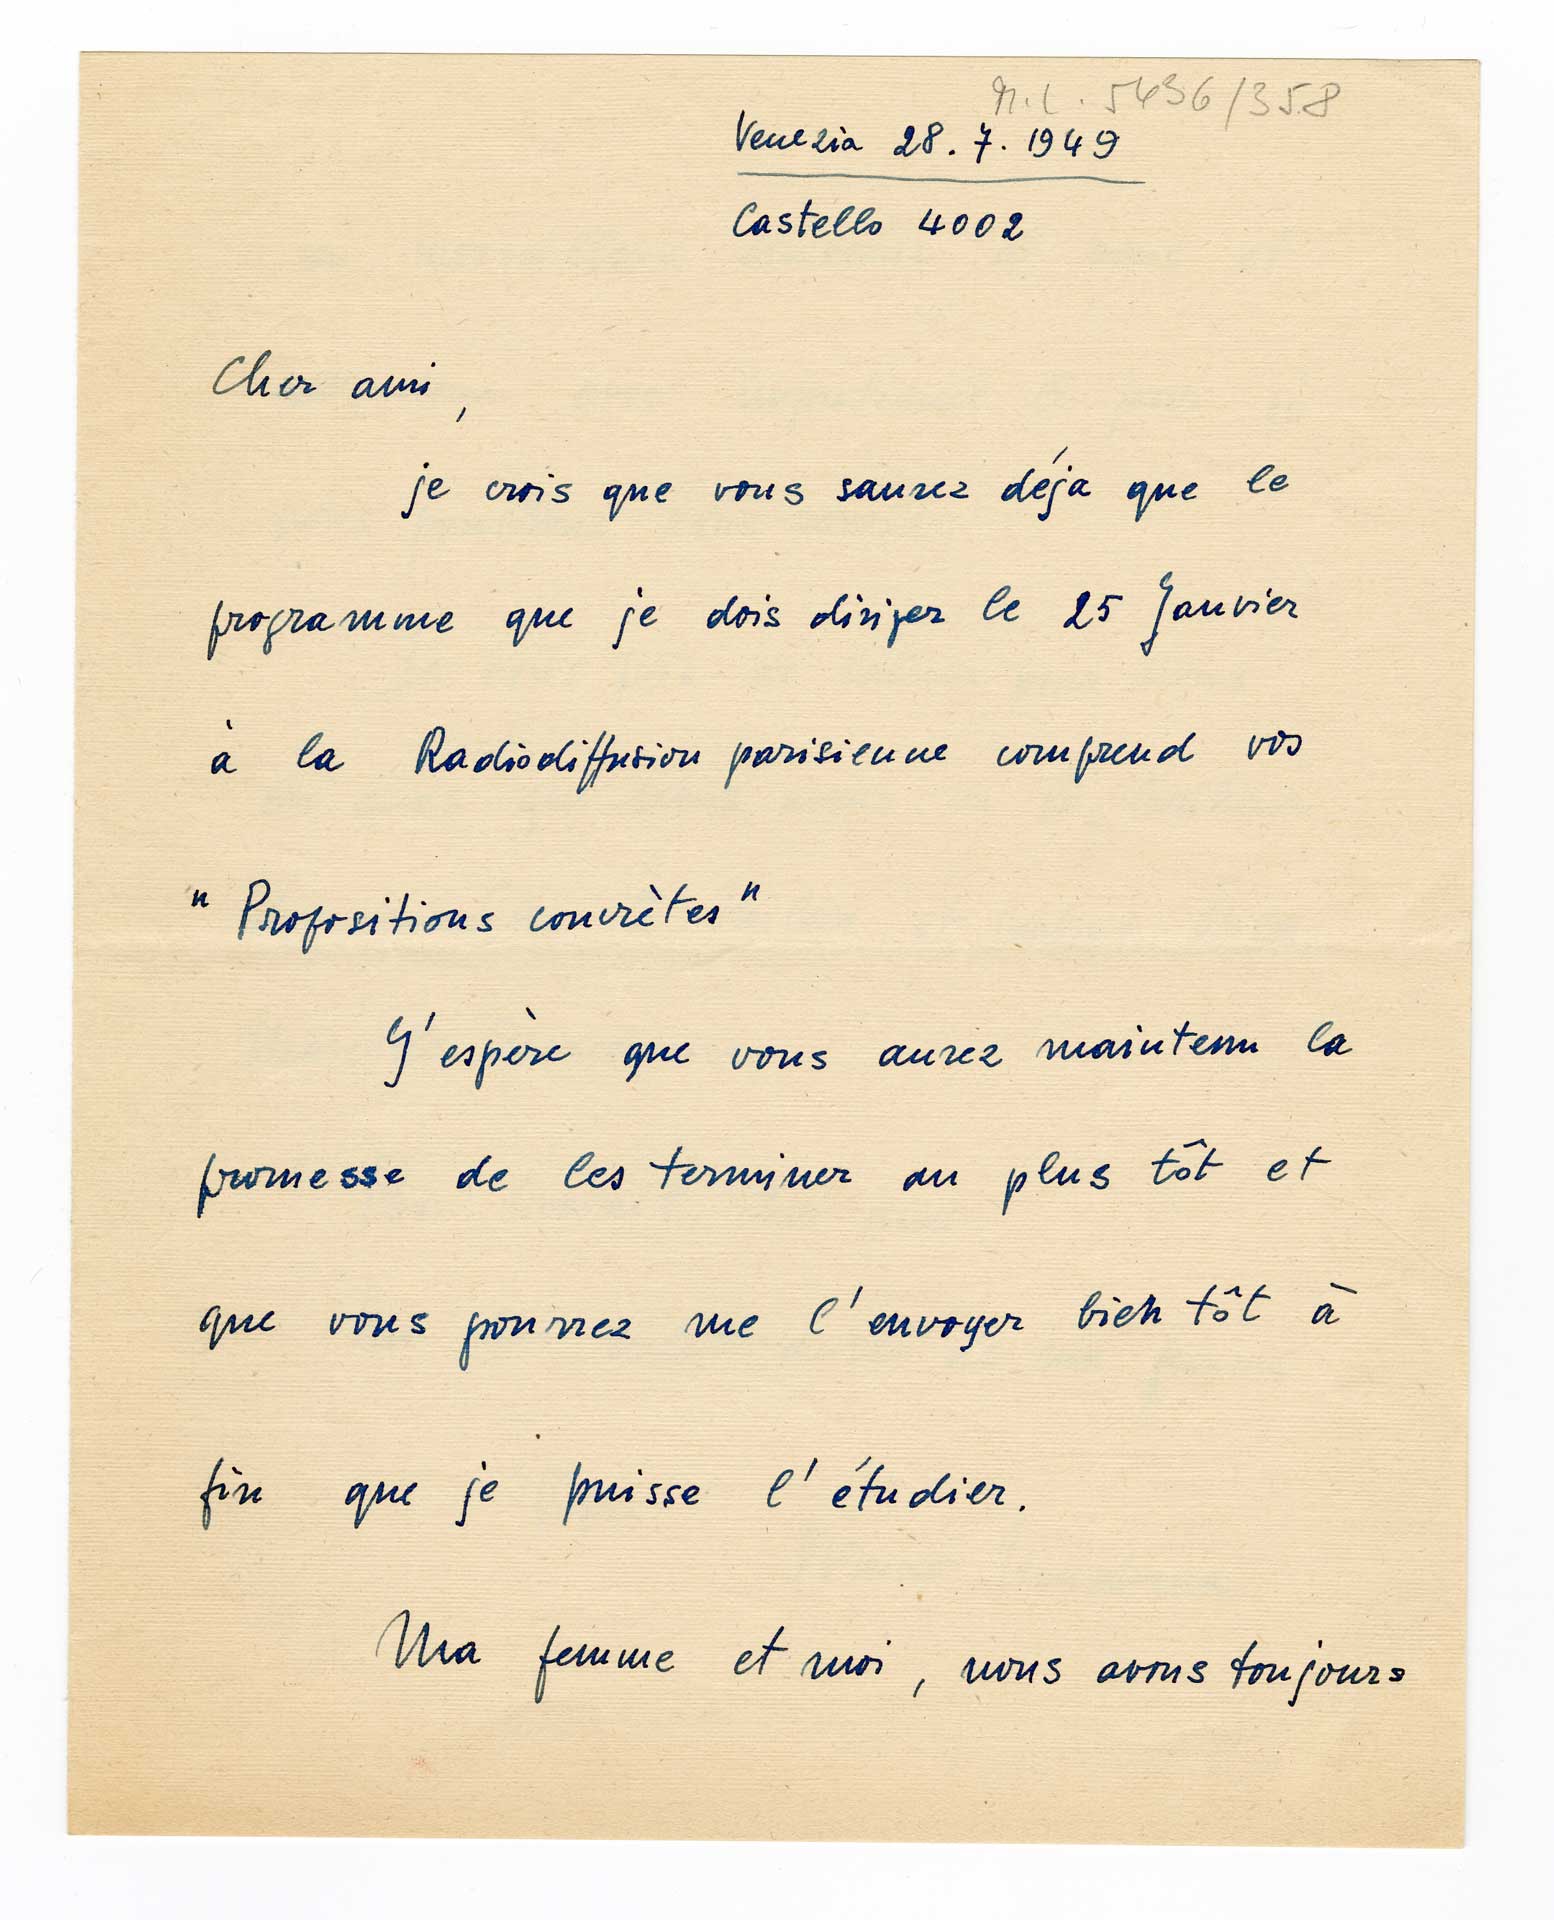 M.L. 5436/358
Venezia 28.7.1949
Castello 4002
Cher ami,
je crois que vous saurez déja que le
programme que je dois diriger le 25 Janvier
à la Radiodiffusion parisienne comprend vos
"Propositions concrètes"
J'espère que vous aurez maintenu la
promesse de les terminer au plus tôt et
que vous pourrez me l'envoyer bien tôt à
fin que je puisse l'étudier.
Ma femme et moi, nous avons toujours